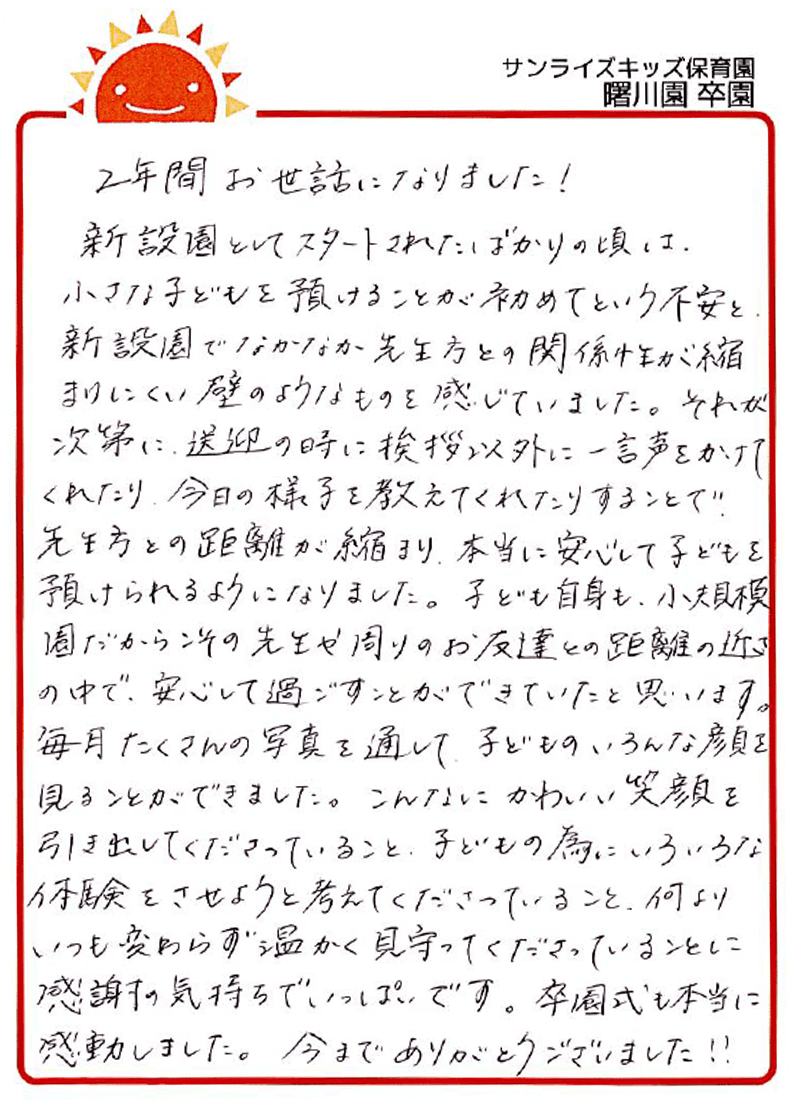 サンライズキッズ保育園
曙川園 卒園
2年間 お世話になりました!
新設園としてスタートされたばかりの頃は、
小さな子どもを預けることが初めてという不安と、
新設園でなかなか先生方との関係性が縮
まりにくい壁のようなものを感じていました。それが
次第に、送迎の時に挨拶以外に一言声をかけて
くれたり、今日の様子を教えてくれたりすることで、
先生方との距離が縮まり、本当に安心して子どもを
預けられるようになりました。子ども自身も、小規模
園だからこその先生や周りのお友達との距離の近さ
の中で、安心して過ごすことができていたと思います。
毎月たくさんの写真を通して、子どものいろんな顔を
見ることができました。こんなにかわいい笑顔を
引き出してくださっていること、子どもの為にいろいろな
体験をさせようと考えてくださっていること、何より
いつも変わらず温かく見守ってくださっていることに
感謝の気持ちでいっぱいです。卒園式も本当に
感動しました。今までありがとうございました!!